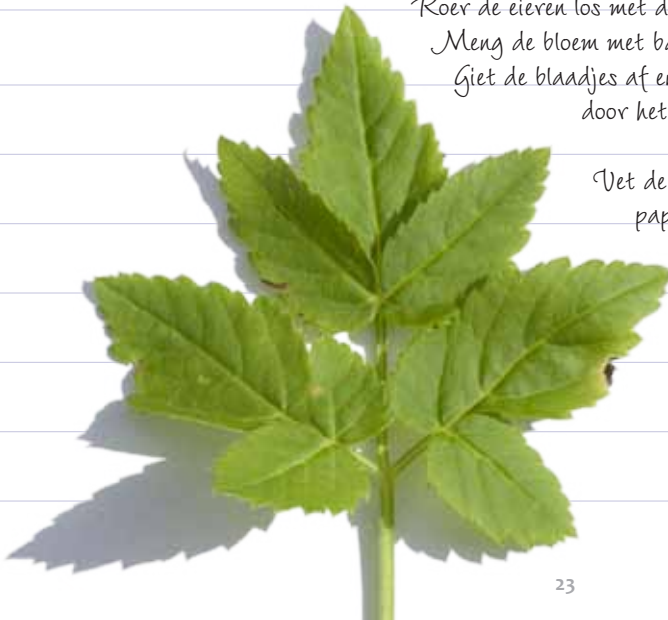 Roer de eieren los met d
Meng de bloem met ba
Giet de blaadjes af er
door het
Vet de
pap
23